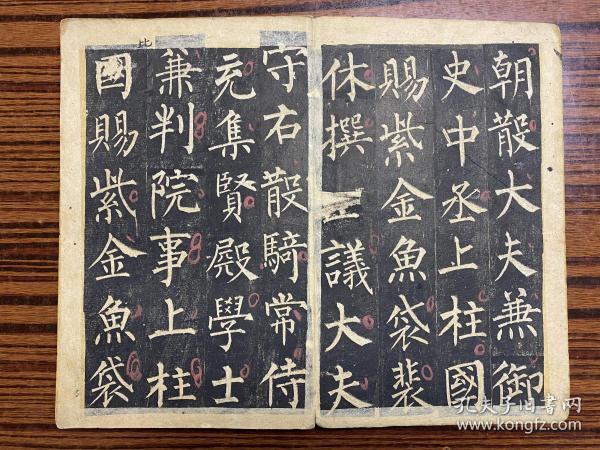 朝散大夫兼御
史中丞上柱國
賜紫金魚袋裴
休撰議大夫
守右散騎常侍
充集賢殿學士
兼判院事上柱
國賜紫金魚袋
孔夫子旧书网
www.kongfz.com